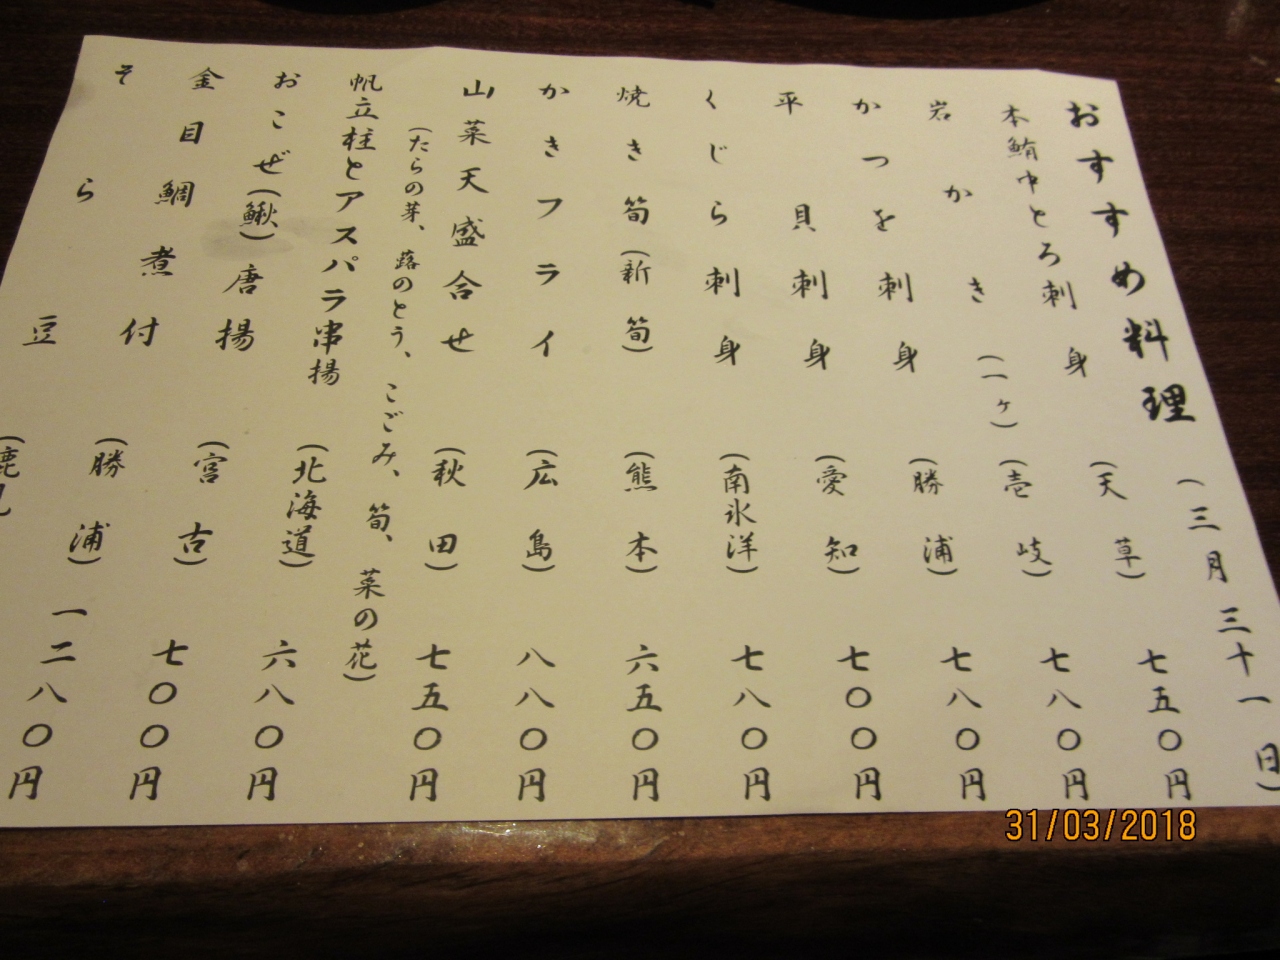 おすすめ料理 (三月三十一日)
本鮪中とろ刺身 (天草) 七五〇円
岩かき(一ヶ) (壱岐) 七八〇円
かつを刺身 (勝浦) 七八〇円
平貝刺身 (愛知) 七〇〇円
くじら刺身 (南氷洋) 七八〇円
焼き筍(新筍) (熊本) 六五〇円
かきフライ (広島) 八八〇円
山菜天盛合せ (秋田) 七五〇円
(たらの芽、蕗のとう、こごみ、筍、菜の花)
帆立柱とアスパラ串揚 (北海道) 六八〇円
おこぜ(鰍)唐揚 (宮古) 七〇〇円
金目鯛煮付 (勝浦) 一二八〇円
そら豆 (鹿児
31/03/2018